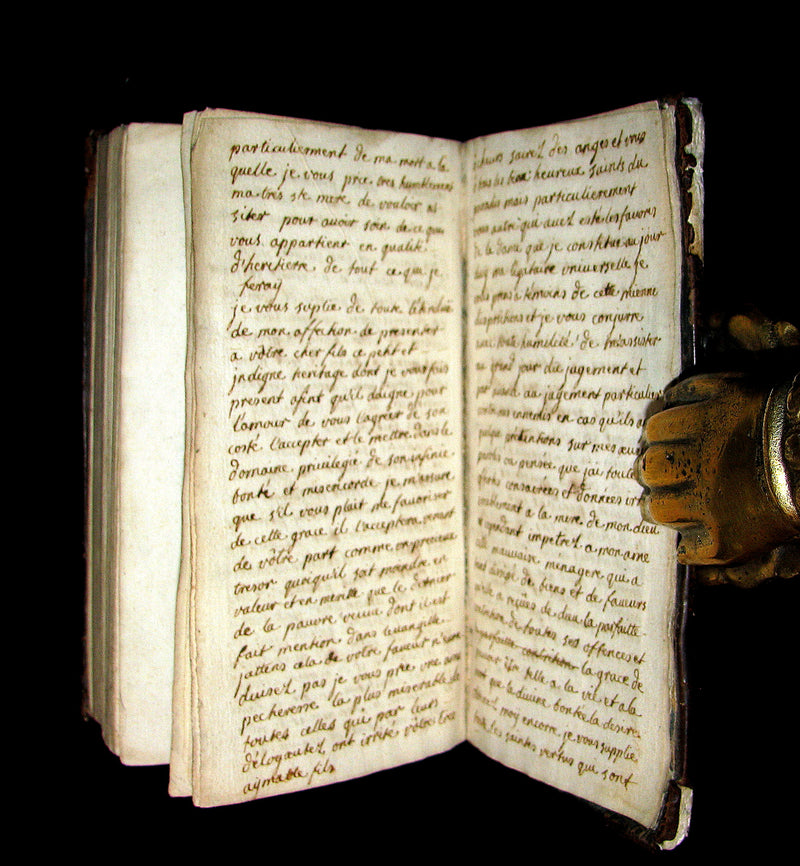 particulierment de ma mort a la
quelle je vous prie tres humblement
ma trés ste mere de vouloir as
sister pour avoir soin de ce qui
vous appartient en qualité
d'heritierre de tout ce que je
feray
je vous suplie de toute
de mon affection de presenter
a vôtre cher fils ce petit et
indigne heritage dont je vous fais
present afint qu'il daigne pour
l'amour de vous l'agreer de son
costé l'accepter et le mettre dans le
domaine privilegié de son infinie
bonté et misericorde je m'assure
que s'il vous plait me favoriser
de cette grace il l'acceptera venant
de vôtre part comme un precieux
tresor quoiqu'il soit moindre en
valeur et en merite que le dernier
de la pauvre veuve dont il est
fait mention dans levangille
jattens cela de votre faveur
duisez pas je vous prie une
pecheresse la plus miserable de
toutes celles qui par leurs
ont irrité vôtre tres
aymable fils
des anges et vous
tous les bien heureux saints du
paradis mais particulierement
vous autre qui avez esté les favoris
de la dame que je constitue aujour
ma légataire universelle je
vous prens a temoins de cette mienne
et je vous conjurre
avec toute humilité de m'assister
au grand jour du jugement et
par avance au jugement particulier
en cas qu'ils
pretentions sur mes
ou pensée que jai toute
consacrées et données
a la mere de mon dieu
cependant impetrez a mon ame
mauvaise menagere qui a
de biens et de faveurs
a reçües de dieu la parfaitte
de toutes ses offences et
parfaitte contrition la grace de
telle a la vie et a la
que la divine bonté la desire
moy encore je vous supplie
toute les saintes vertus qui sont